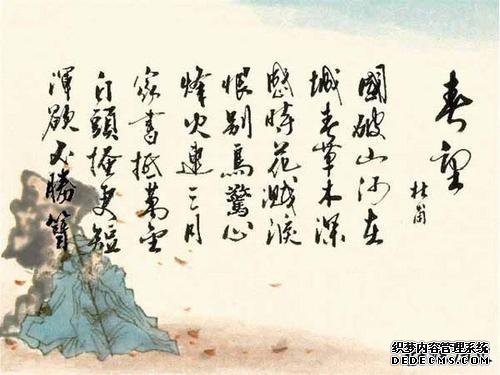 春望
杜甫
國破山河在
城春草木深
感時花濺淚
恨別鳥驚心
烽火連三月
家書抵萬金
白頭搔更短
渾欲不勝簪
织梦内容管理系统
DEDECMS.COM